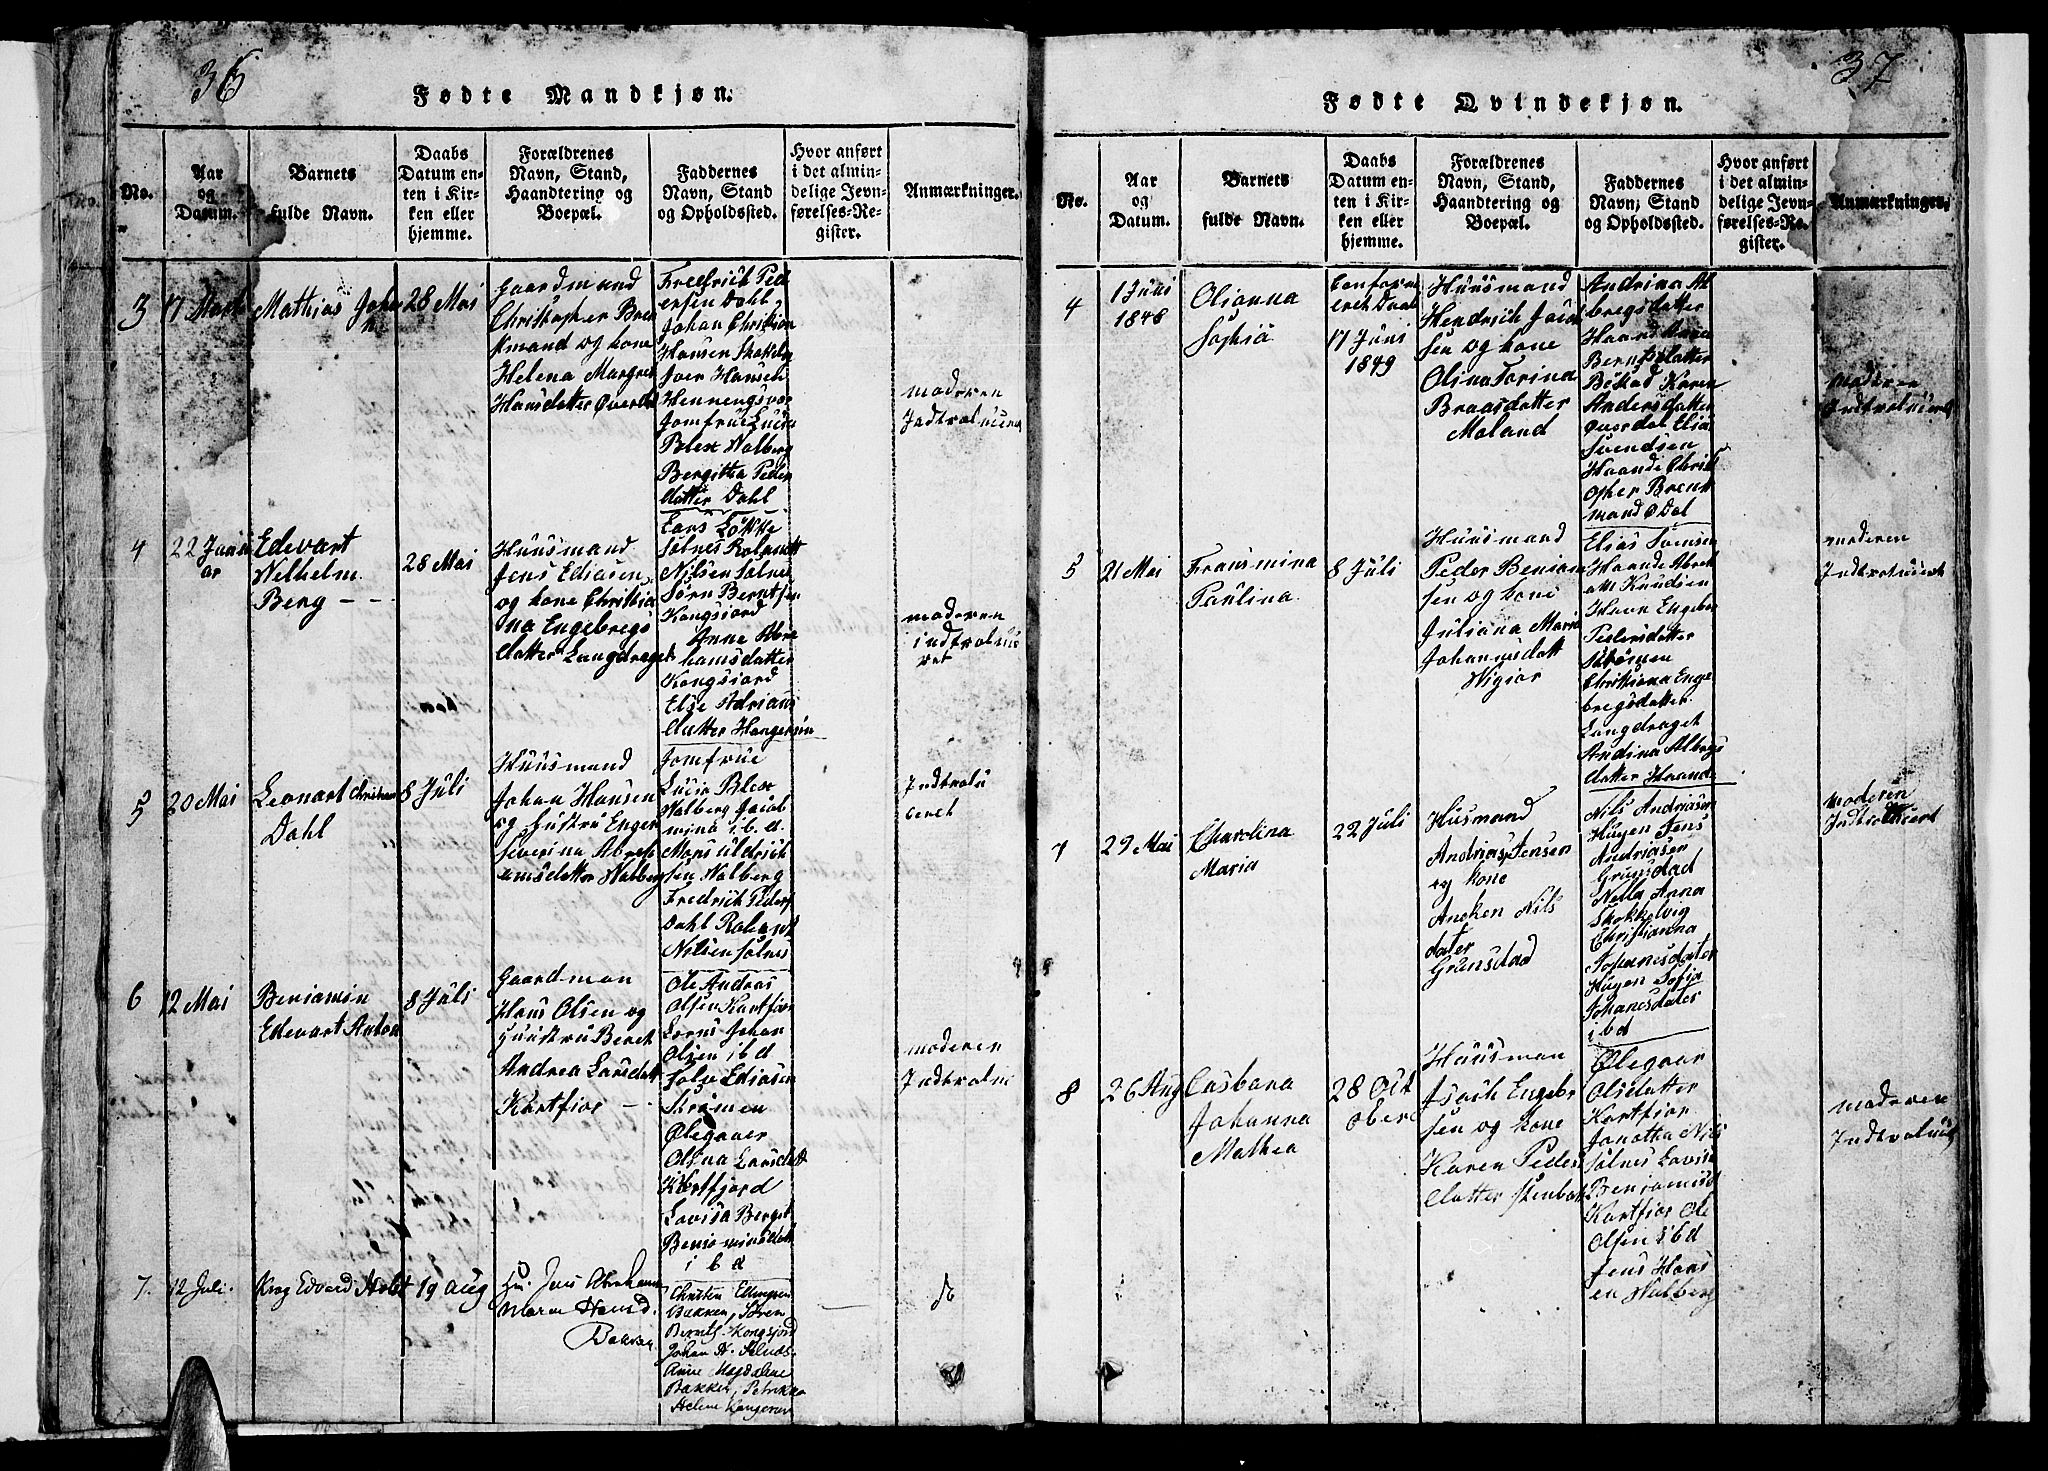 36
Fødte Mandkjøn.
No.
Aar
og
Datum.
Barnets
fulde Navn.
Daabs
Datum en-
ten i Kir-
ken eller
hjemme.
Forældrenes
Navn, Stand,
Haandtering og
Boepæl.
Faddernes
Navn, Stand
og Opholdssted.
Hvor anført
i det almin-
delige Jevn-
førelses-Re-
gister.
Anmærkninger.
3
17 Marts
Mathias Johan
28 Mai
Gaardmand
Christopher Bren
kmand og kone
Helena Margret
Hansdatter Øverdal
Fredrich Ped
ersen Dahl
Johan Christian
Hansen
Joer Hansen
Henningsvær
Jomfrue Lucia
Blix Walberg
Bergitha Peder
datter Dahl
moderen
4
22 Janu
ar
Edevart
Welhelm
Berg
28 Mai
Huusmand
Jens Eliasen
og kone Christia
na Engebregs
datter Langdraget
Lars Løkke
Solnes
Nilsen Solnes
Sørn Berntsen
Kongsiord
Anne Abra
hamsdatter
Kongsiord
Else Adrians
datter
moderen
indtrolni
ret
5
20 Mai
Leonart Christian
Dahl
8 Juli
Huusmand
Johan Hansen
og Hustru Enger
Severina Abrah
amsdatter Walberg
Jomfrue
Lucia Blix
Walberg Jacob
mina i.b.d.
Mons Uldrich
sen Walberg
Fredrich Peders
Dahl
Nilsen Solnes
6
12 Mai
Beniamin
Edevart Anton
8 Juli
Gaardman
Hans Olsen og
Huustru Beret
Andrea Larsdatt
Kortfior
Ole Andras
Olsen Kortfior
Lorns Johan
Olsen i b d
Eliasen
Strømen
Ølegaaer
Olsna Larsdatt
Kortfjord
Lovisa Berget
i b d
moderen
7.
12 Juli.
Krog Edvard Holst
19 Aug
Hu. Jens Abraham
Maren Hansd.
Bakken
Christen Ellingsen
Bakken, Søren
Bernts. Kongsjord
Johan H. Solnes
Anne Magdalene
Bakken, Petrikka
Helene
do
37
Fødte Qvindekjøn.
No.
Aar
og
Datum.
Barnets
fulde Navn.
Daabs
Datum en-
ten i Kir-
ken eller
hjemme.
Forældrenes
Navn, Stand,
Haandtering og
Boepæl.
Faddernes
Navn, Stand
og Opholdssted.
Hvor anført
i det almin-
delige Jevn-
førelses-Re-
gister.
Anmærkninger.
4
1 Juni
1848
Olianna
Sophia
Conferm
eret Daab
17 Juni
1849
Huusmand
Hendrich Jacob
sen og kone
Olina Torina
Braasdatter
Moland
Andrina Al
bregsdatter
Haand
Berntsdatter
Bøstad Karen
Andersdatter
Øverdal Elias
Svendsen
Haande Christ
opher Brenk
mand Ø Dal
moderen
5
21 Mai
Fransmina
Paulina
8 Juli
Huusmand
Peder Beniam
sen og kone
Juliana Maria
Johannisdatt
Elias
Haande Abrah
am Knudsen
Haan Engeber
Pedersdatter
Strømen
Christiana Enge
bregsdatter
Langdraget
Andina Albregs
datter Haand
moderen
7
29 Mai
Charolina
Maria
22 Juli
Husmand
Andrias Jensen
og kone
Ancken Nils
dater
Grunstad
Nils Andriasen
Hugen Jens
Andriasen
Grunstad
Nella Anna
Skokkelvig
Christianna
Johanesdater
Hugen Sofia
Johanesdater
i b d
moderen
8
26 Aug
Casbara
Johanna
Mathea
28 Oct
ober
Huusman
Isach Engebr
sen og kone
Karen Peders
datter
Ølegaar
Olsdatter
Kortfior
Janotha Nils
Solnes Lovisa
Benjaminsd
Kortfior Ole
Olsen i b d
Jens Hans
en Walberg
moderen